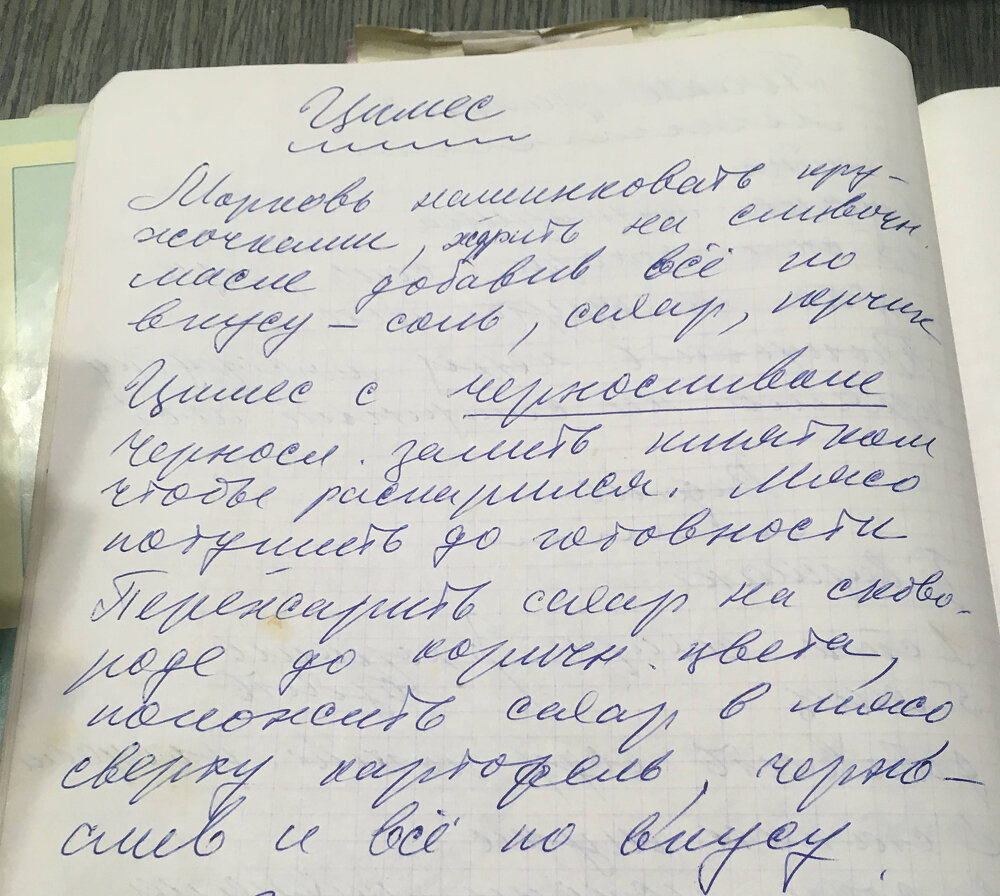 Цимес
Морковь нашинковать кру-
жочками, жарить на сливочн.
масле добавив всё по
вкусу – соль, сахар, перчик
Цимес с черносливом
Чернося. залить кипятком
чтобы распарился. Мясо
потушить до готовности
Пережарить сахар на сково-
роде до коричн. цвета,
положить сахар в мясо,
сверху картофель, черно-
слив и всё по вкусу.